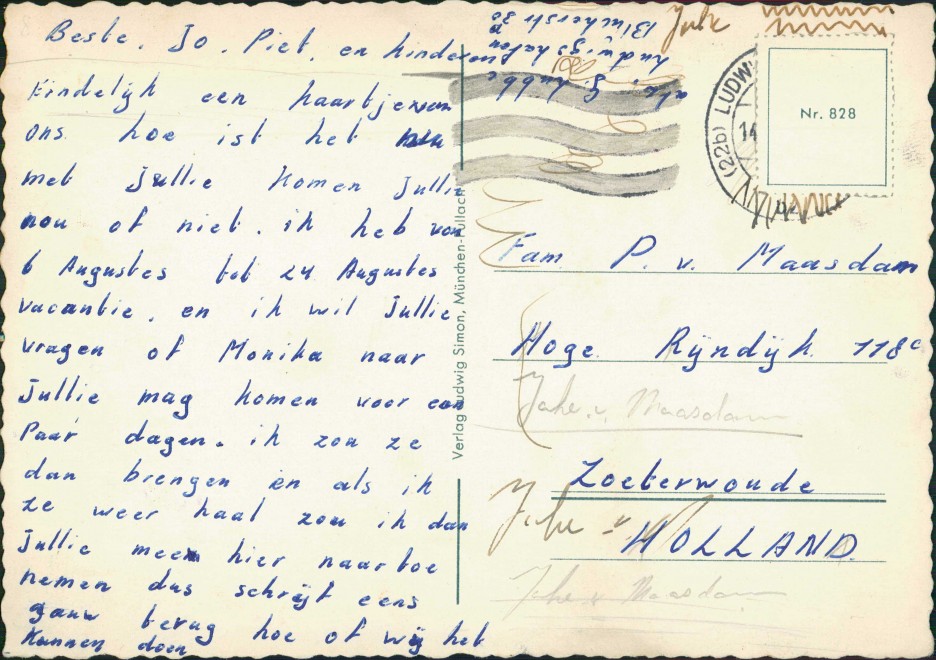 Beste. Jo. Piet. en kinderen
Eindelijk een kaartje van
ons. hoe ist het
met Jullie Komen Jullie
nou of niet. ik heb van
6 Augustes tot 24 Augustes
vacantie. en ik wil Jullie
vragen of Monika naar
Jullie mag komen voor een
Paar dagen. ik zou ze
dan brengen en als ik
ze weer haal zou ik dan
Jullie meen hier naar toe
nemen dus schrijt eens
gauw terug hoe of wij het
Kunnen doen
Ludwigshafen
Blücherstr 30
Verlag Ludwig Simon, München-Pullach
(22b) LUDW
14
Nr. 828
Fam. P. v. Maasdam
Hoge Rijndijk 118c
Joke v Maasdam
Zoeterwoude
Joke v
HOLLAND.
Joke v Maasdam
Joke